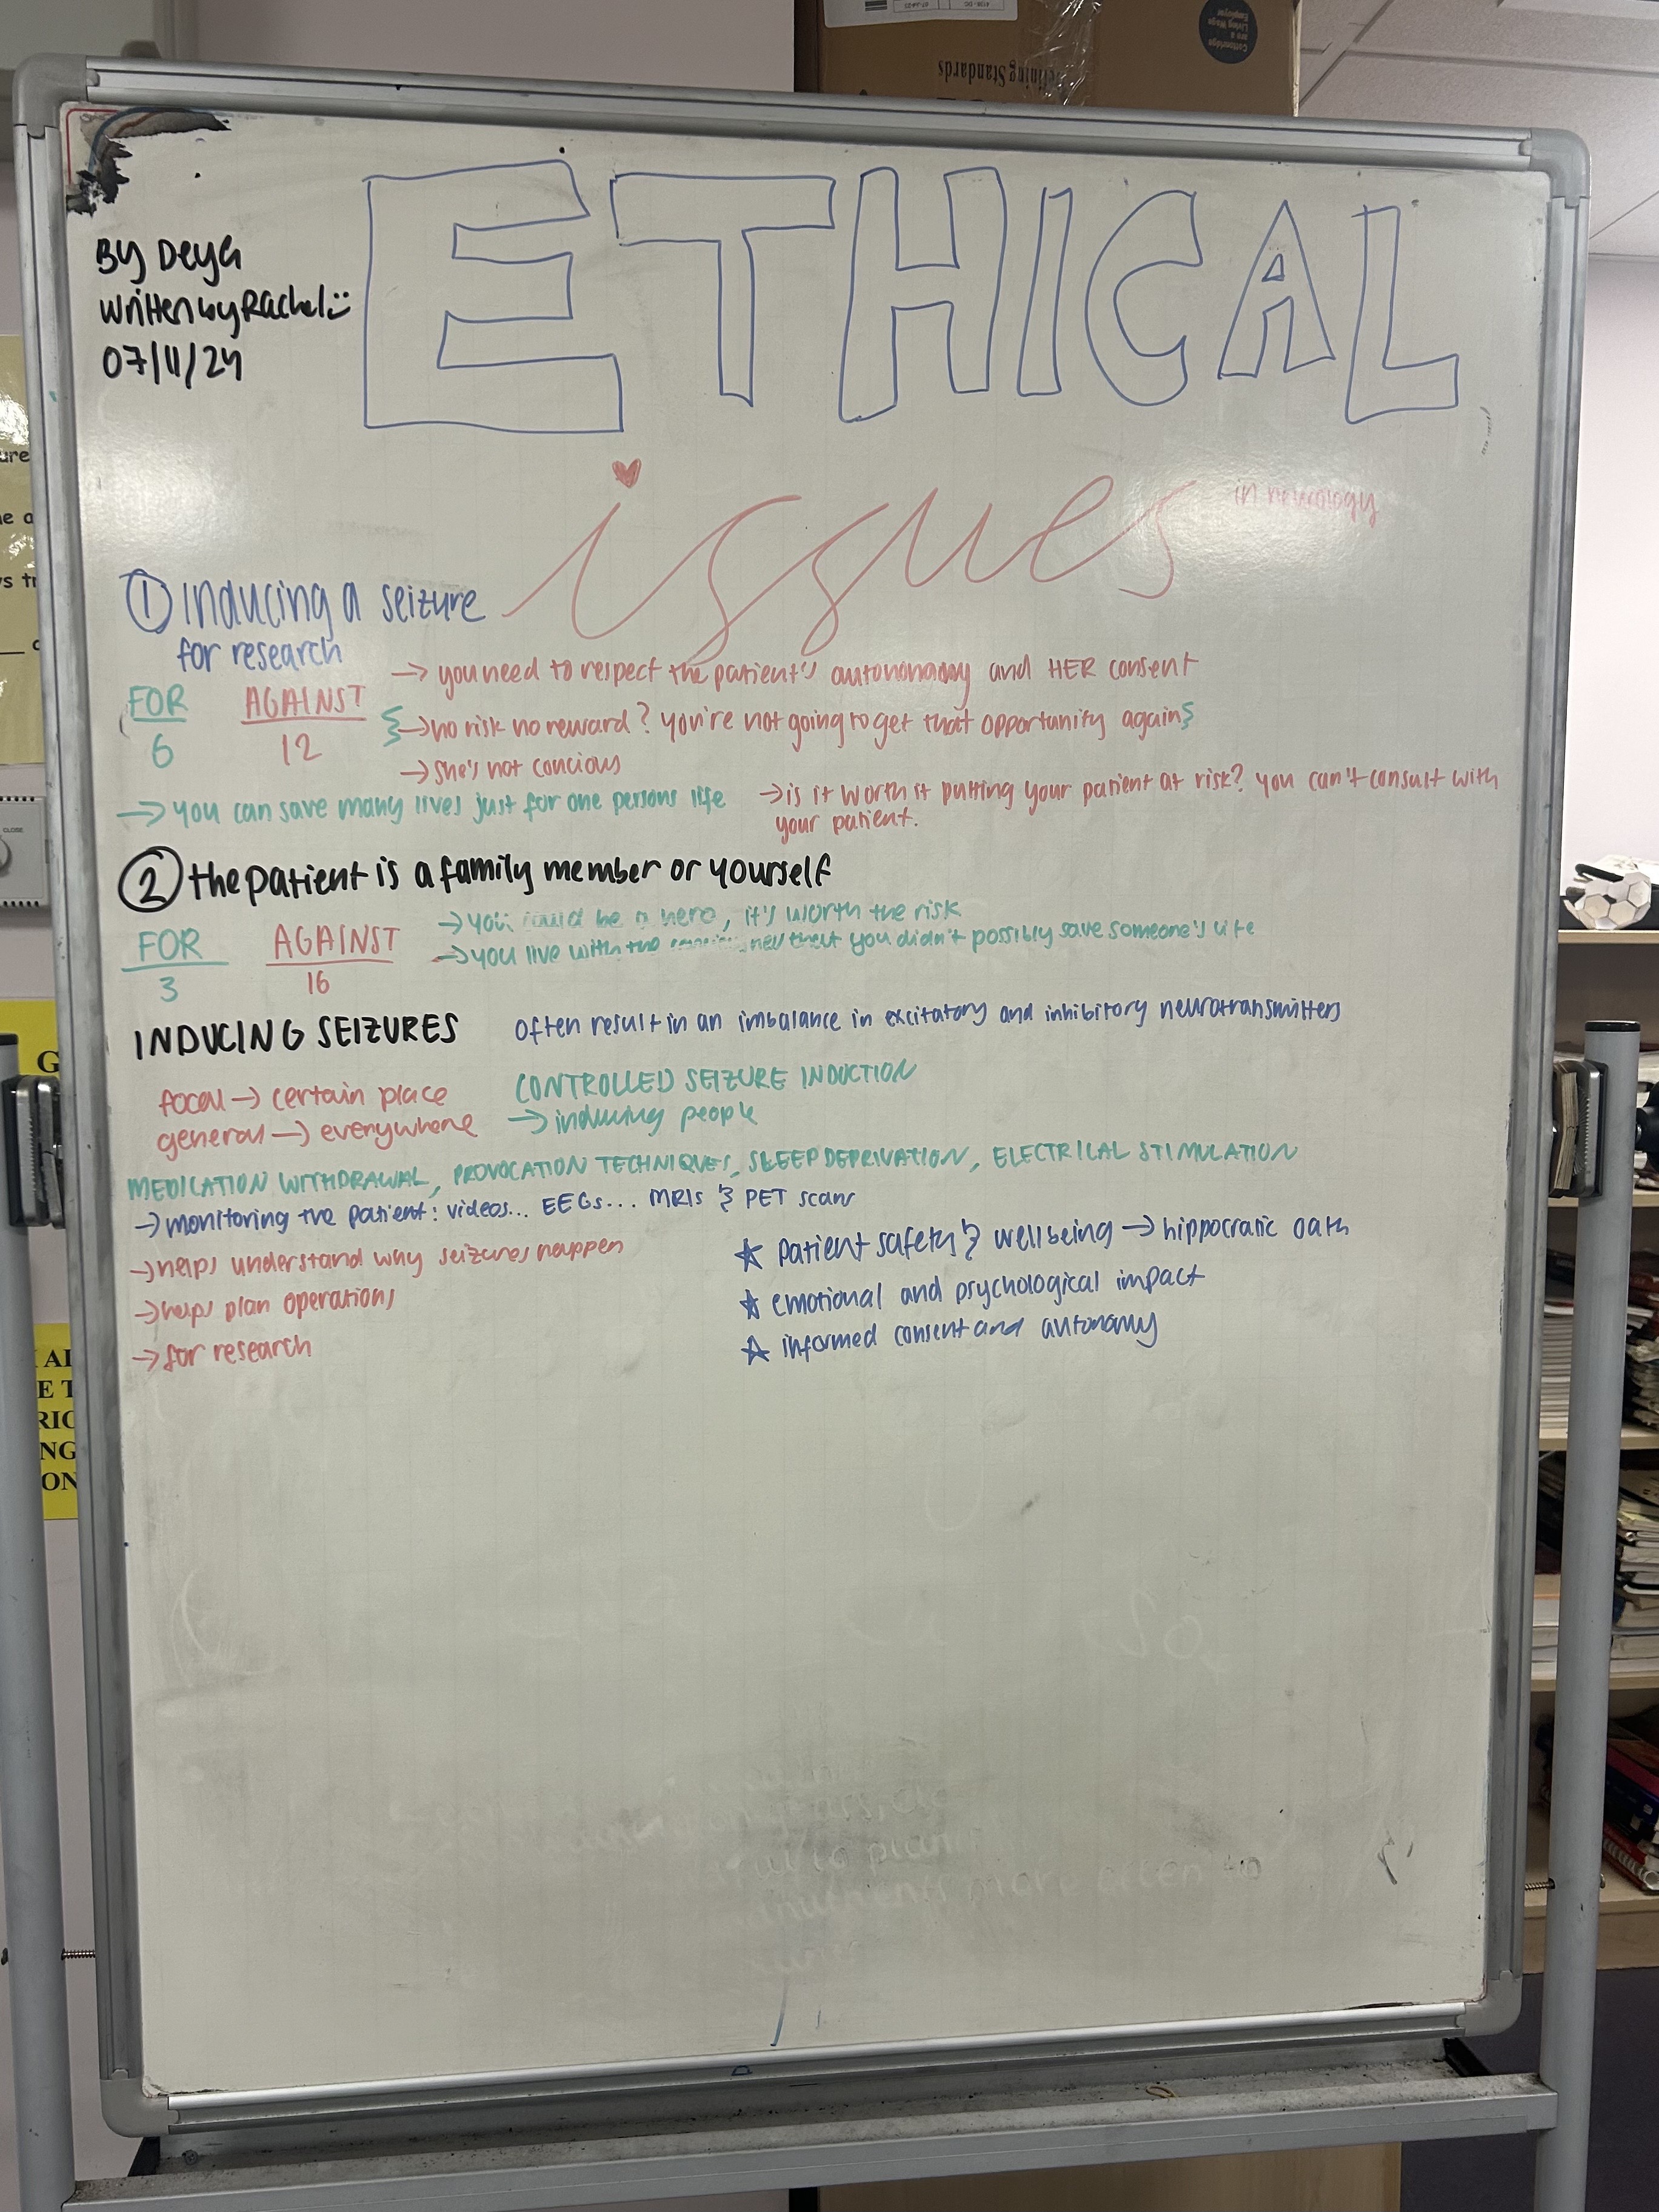 BY Deya
Written by Rachel :)
07/11/24
ETHICAL
issues
in neurology
① Inducing a seizure
for research
FOR
6
AGAINST
12
→ you need to respect the patient's autononomy and HER consent
→ no risk no reward? you're not going to get that opportunity again
→ she's not concious
→ you can save many lives just for one persons life
→ is it worth it putting your patient at risk? you can't consult with
your patient.
② the patient is a family member or yourself
FOR
3
AGAINST
16
→ you could be a hero, it's worth the risk
→ you live with the that you didn't possibly save someone's life
INDUCING SEIZURES
often result in an imbalance in excitatory and inhibitory neurotransmitters
focal → certain place
general → everywhere
CONTROLLED SEIZURE INDUCTION
→ inducing people
MEDICATION WITHDRAWAL, PROVOCATION TECHNIQUES, SLEEP DEPRIVATION, ELECTRICAL STIMULATION
→ monitoring the patient: videos... EEGs... MRIs & PET scans
→ helps understand why seizures happen
→ helps plan operations
→ for research
☆ patient safety & wellbeing → hippocratic oath
☆ emotional and psychological impact
☆ informed consent and autonomy